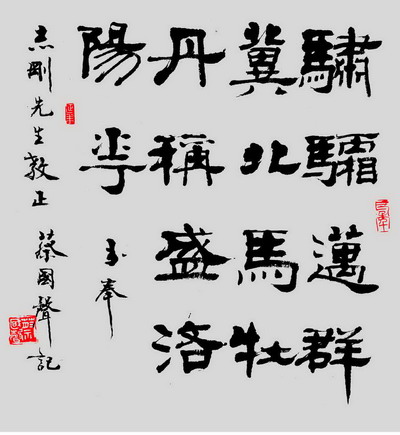 驌驦邁群
冀北馬牡
丹稱盛洛
陽華
書奉
志剛先生教正 蔡國聲記